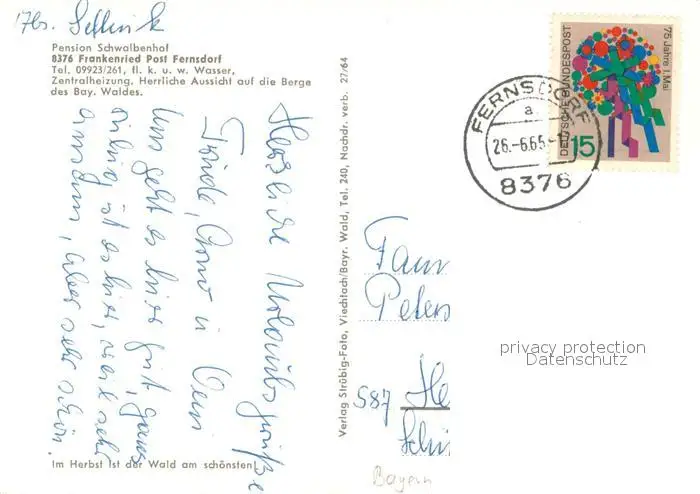 Pension Schwalbenhof
8376 Frankenried Post Fernsdorf
Tel. 09923/261, fl. k. u. w. Wasser,
Zentralheizung, Herrliche Aussicht auf die Berge
des Bay. Waldes.
Herzliche Urlaubsgrüße
uns geht es hier gut, ganz
ist es hier, sehr
aber sehr schön.
Im Herbst ist der Wald am schönsten!
Verlag Strübig-Foto, Viechtach/Bayr. Wald, Tel. 240, Nachdr. verb. 27/64
DEUTSCHE BUNDESPOST
75 Jahre 1. Mai
15
FERNSDORF
a
26.-6.65.-1
8376
Fam
Peters
587 He
Schi
Bayern
privacy protection
Datenschutz